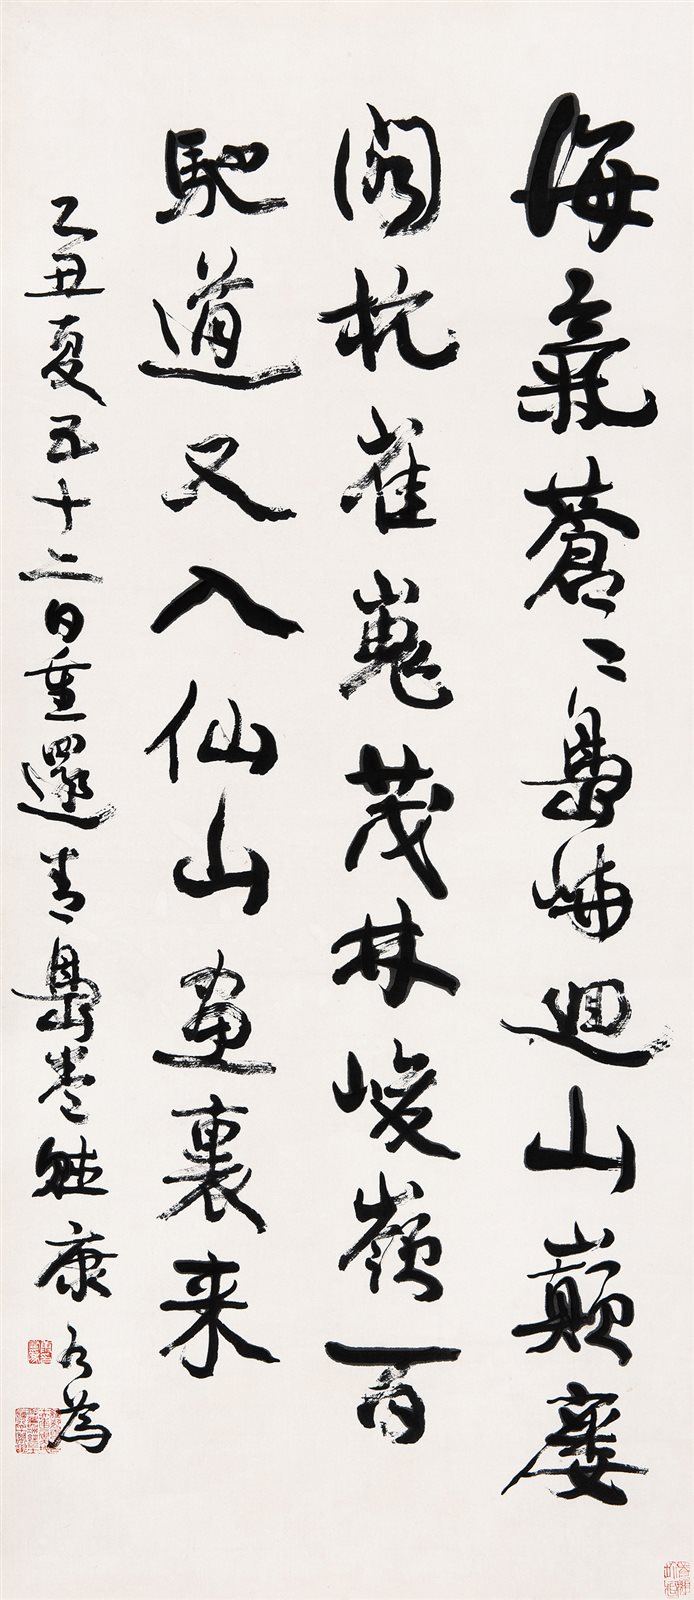 海氣蒼〻島嶼迴山巔廔
閣枕崔嵬茂林峻嶺百
馳道又入仙山畫裏来
乙丑夏五十二日重還青島卷然康有為